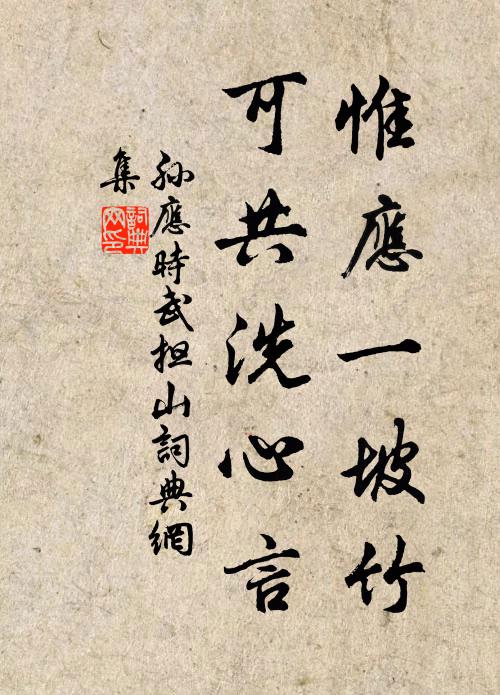 惟應一坡竹
可共洗心言
孙應時武担山詞典網
集
詞典網印